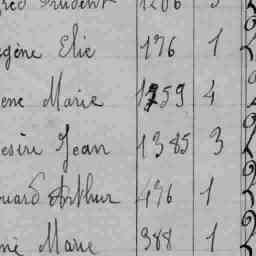 Prudent 1206 3
gène Elie 176 1
ene Marie 1259 4
esiré Jean 1385 3
ouard Arthur 476 1
né Marie 388 1